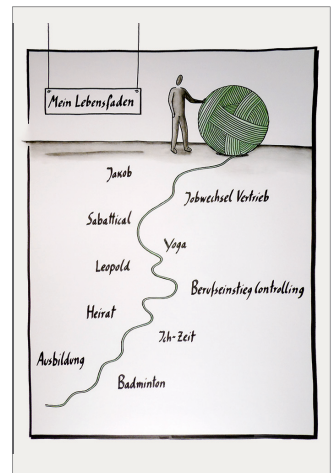 Mein Lebensfaden
Jakob
Jobwechsel Vertrieb
Sabattical
Yoga
Leopold
Berufseinstieg Controlling
Heirat
Ich-Zeit
Ausbildung
Badminton